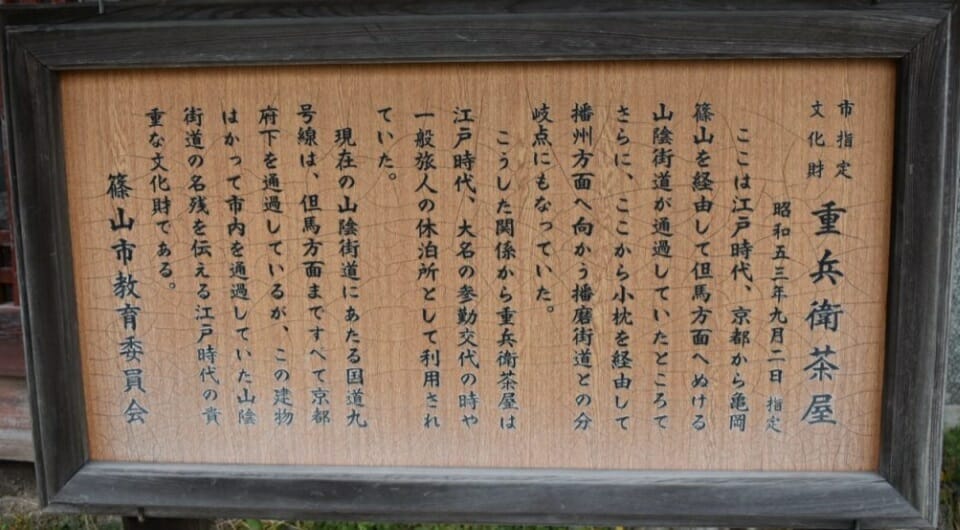 市指定
文化財
重兵衛茶屋
昭和五三年九月二日 指定
ここは江戸時代、京都から亀岡
篠山を経由して但馬方面へぬける
山陰街道が通過していたところで
さらに、ここから小枕を経由して
播州方面へ向かう播磨街道との分
岐点にもなっていた。
こうした関係から重兵衛茶屋は
江戸時代、大名の参勤交代の時や
一般旅人の休泊所として利用され
ていた。
現在の山陰街道にあたる国道九
号線は、但馬方面まですべて京都
府下を通過しているが、この建物
はかって市内を通過していた山陰
街道の名残を伝える江戸時代の貴
重な文化財である。
篠山市教育委員会